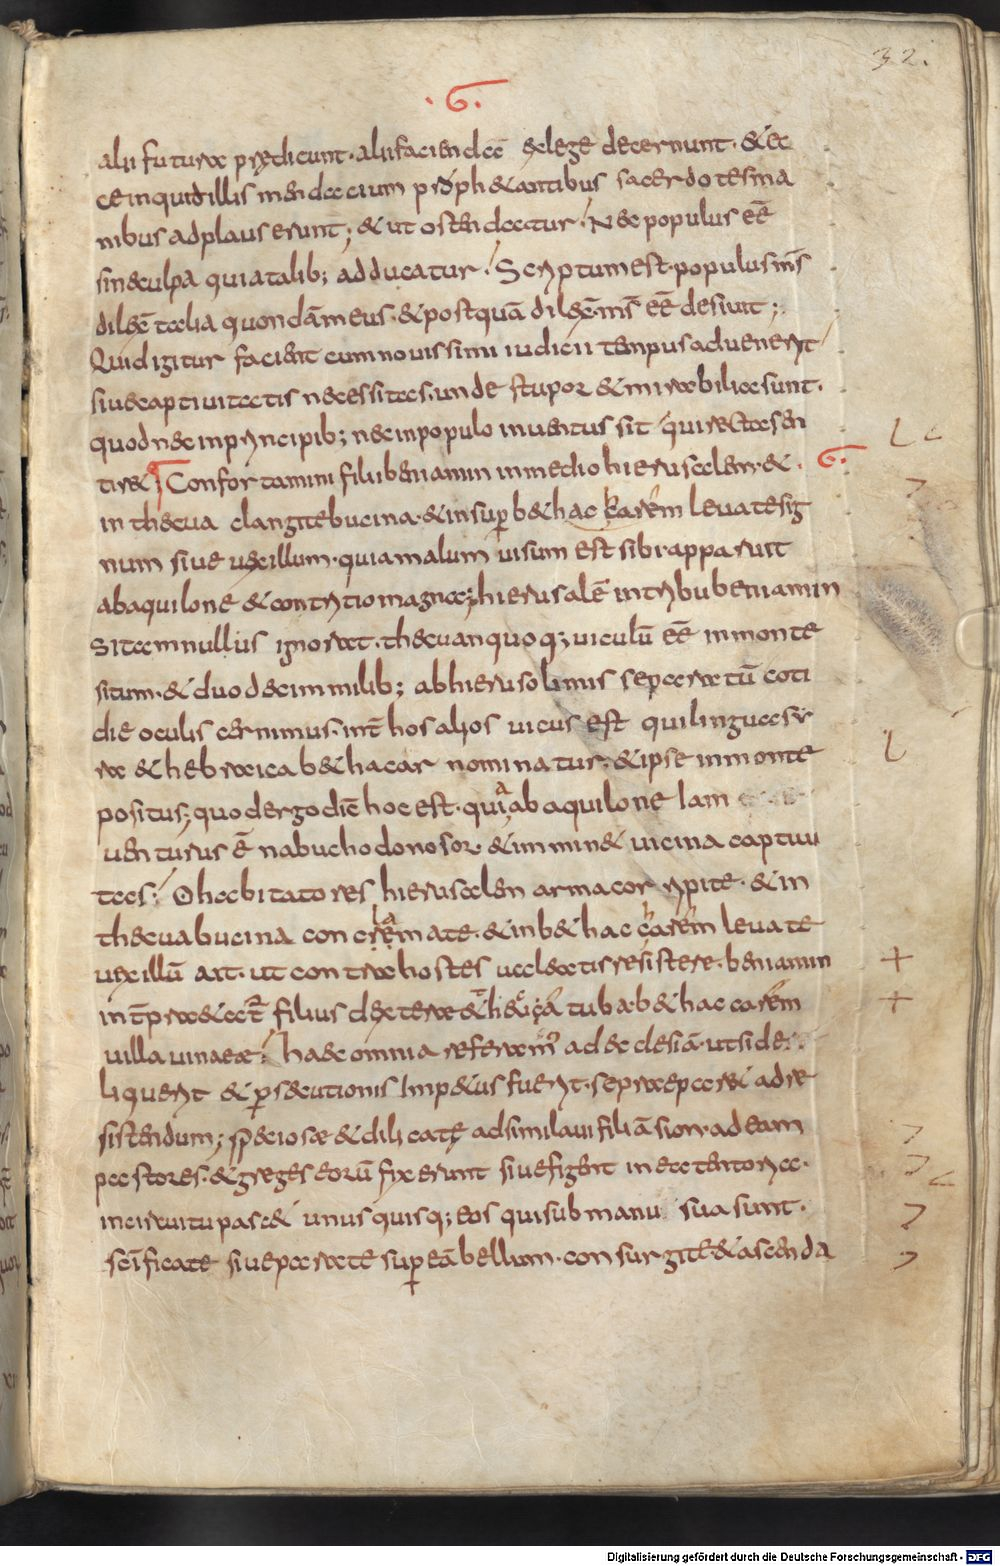 32.
.6.
alii futura prędicunt. alii facienda ex lege decernunt. & ec
ce inquid illis mendacium proph&antibus sacerdotes ma
nibus adplauserunt; & ut ostendatur. Nec populus eē
sine culpa qui a talib; adducatur. Scriptum est. populus m̄s
dilexē talia quondā meus. & postquā dilex̄. m̄s eē desiuit;
Quid igitur facient cum nouissimi iudicii tempus aduenerit
siue captiuitatis necessitas. unde stupor & mirabilia sunt.
quod nec in principib; nec in populo inuentus sit qui recta sen
tire& Confortamini filii beniamin in medio hierusalem. & .6.
in thecua clangite bucina. & insup b&hac karem leuate sig
num siue uexillum. quia malum uisum est sibi. apparuit
ab aquilone & contritio magna; hierusalē in tribu beniamin
sitam nullus ignorat. thecuan quoq; uiculū eē in monte
situm. & duodecim milib; ab hierusolimis separatū coti
die oculis cernimus. int̄ hos alios uicus est qui lingua sy
ra & hebraica b&hacar nominatur. & ipse in monte
positus; quod ergo dic̄ hoc est. quia ab aquilone iam
uenturus ē nabuchodonosor. & inmin& uicina captiui
tas. O habitatores hierusalen arma corripite. & in
thecua bucina concremate. & in b&hac karem leuate
uexillū ait. ut contra hostes ualeatis resistere. beniamin
int̄pra&at̄ filius dexterae
uilla uineae. haec omnia referam' ad ecclesiā. ut si de
liquerit & p̄secutionis imp&us fuerit. sepraepar& ad re
sistendum; speciosae & dilicatę adsimilaui filiā sion. ad eam
pastores. & greges eorū fixerunt siue figent in ea tentoria.
in circuitu pasc& unus quisq; eos qui sub manu sua sunt.
sc̄ificate siue parate sup eā bellum. consurgite & ascenda
Digitalisierung gefördert durch die Deutsche Forschungsgemeinschaft - DFG